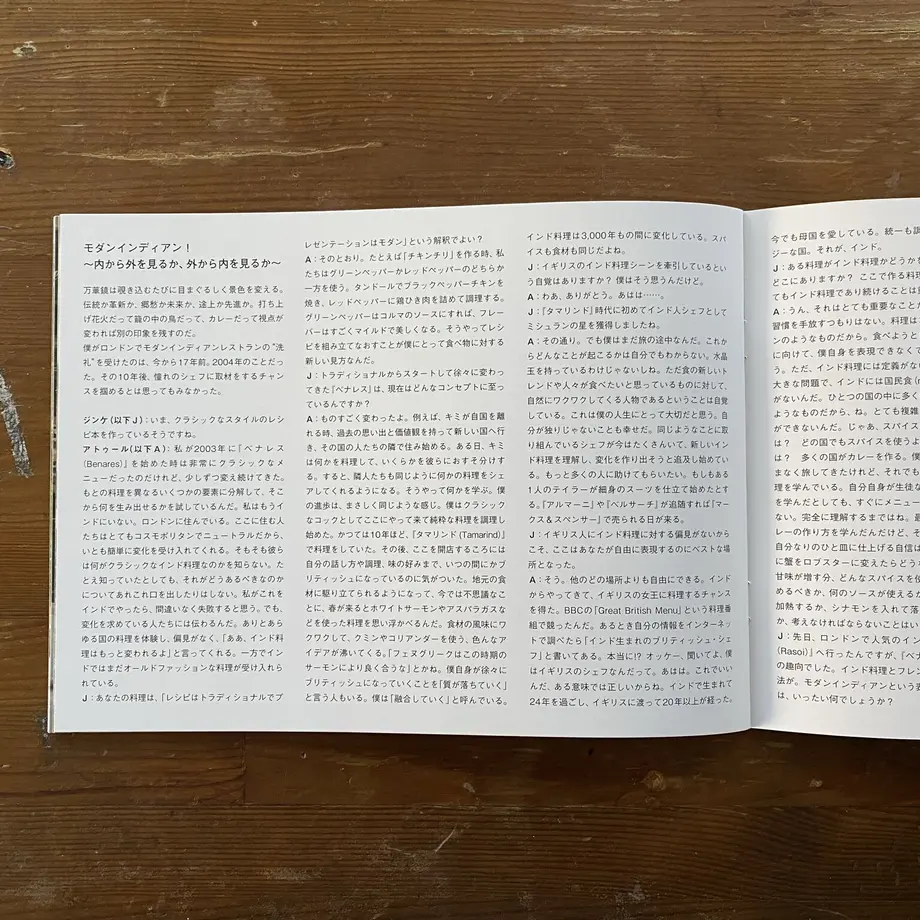 モダンインディアン！
〜内から外を見るか、外から内を見るか〜
万華鏡は覗き込むたびに目まぐるしく景色を変える。
伝統か革新か、郷愁か未来か、途上か先進か。打ち上
げ花火だって籠の中の鳥だって、カレーだって視点が
変われば別の印象を残すのだ。
僕がロンドンでモダンインディアンレストランの“洗
礼”を受けたのは、今から17年前。2004年のことだっ
た。その10年後、憧れのシェフに取材をするチャンス
を掴めるとは思ってもみなかった。
ジンケ(以下J)：いま、クラシックなスタイルのレシ
ピ本を作っているそうですね。
アトゥール(以下A)：私が2003年に『ベナレス
(Benares)』を始めた時は非常にクラシックなメ
ニューだったのだけれど、少しずつ変え続けてきた。
もとの料理を異なるいくつかの要素に分解して、そこ
から何を生み出せるかを試しているんだ。私はもうイ
ンドにいない。ロンドンに住んでいる。ここに住む人
たちはとてもコスモポリタンでニュートラルだから、
いとも簡単に変化を受け入れてくれる。そもそも彼ら
は何がクラシックなインド料理なのかを知らない。た
とえ知っていたとしても、それがどうあるべきなのか
についてあれこれ口を出したりはしない。私がこれを
インドでやったら、間違いなく失敗すると思う。でも、
変化を求めている人たちには伝わるんだ。ありとあら
ゆる国の料理を体験し、偏見がなく、「ああ、インド料
理はもっと変われるよ」と言ってくれる。一方でイン
ドではまだオールドファッションな料理が受け入れら
れている。
J：あなたの料理は、「レシピはトラディショナルでプ
レゼンテーションはモダン」という解釈でよい？
A：そのとおり。たとえば「チキンチリ」を作る時、私
たちはグリーンペッパーかレッドペッパーのどちらか
一方を使う。タンドールでブラックペッパーチキンを
焼き、レッドペッパーに鶏ひき肉を詰めて調理する。
グリーンペッパーはコルマのソースにすれば、フレー
バーはすごくマイルドで美しくなる。そうやってレシ
ピを組み立てなおすことが僕にとって食べ物に対する
新しい見方なんだ。
J：トラディショナルからスタートして徐々に変わっ
てきた『ベナレス』は、現在はどんなコンセプトに至っ
ているんですか？
A：ものすごく変わったよ。例えば、キミが自国を離
れる時、過去の思い出と価値観を持って新しい国へ行
き、その国の人たちの隣で住み始める。ある日、キミ
は何かを料理して、いくらかを彼らにおすそ分けす
る。すると、隣人たちも同じように何かの料理をシェ
アしてくれるようになる。そうやって何かを学ぶ。僕
の進歩は、まさしく同じような感じ。僕はクラシック
なコックとしてここにやって来て純粋な料理を調理し
始めた。かつては10年ほど、『タマリンド(Tamarind)』
で料理をしていた。その後、ここを開店するころには
自分の話し方や調理、味の好みまで、いつの間にかブ
リティッシュになっているのに気がついた。地元の食
材に駆り立てられるようになって、今では不思議なこ
とに、春が来るとホワイトサーモンやアスパラガスな
どを使った料理を思い浮かべるんだ。食材の風味にワ
クワクして、クミンやコリアンダーを使う、色んなア
イデアが沸いてくる。「フェヌグリークはこの時期の
サーモンにより良く合うな」とかね。僕自身が徐々に
ブリティッシュになっていくことを「質が落ちていく」
と言う人もいる。僕は「融合していく」と呼んでいる。
インド料理は3,000年もの間に変化している。スパ
イスも食材も同じだよね。
J：イギリスのインド料理シーンを牽引しているとい
う自覚はありますか？ 僕はそう思うんだけど。
A：わあ、ありがとう。あはは……。
J：『タマリンド』時代に初めてインド人シェフとして
ミシュランの星を獲得しましたね。
A：その通り。でも僕はまだ旅の途中なんだ。これか
らどんなことが起こるかは自分でもわからない。水晶
玉を持っているわけじゃないしね。ただ食の新しいト
レンドや人々が食べたいと思っているものに対して、
自然にワクワクしてくる人物であるということは自覚
している。これは僕の人生にとって大切だと思う。自
分が独りじゃないことも幸せだ。同じようなことに取
り組んでいるシェフが今はたくさんいて、新しいイン
ド料理を理解し、変化を作り出そうと追及し始めてい
る。もっと多くの人に助けてもらいたい。もしもある
1人のテイラーが細身のスーツを仕立て始めたとす
る。『アルマーニ』や『ベルサーチ』が追随すれば『マー
クス＆スペンサー』で売られる日が来る。
J：イギリス人にインド料理に対する偏見がないから
こそ、ここはあなたが自由に表現するのにベストな場
所となった。
A：そう。他のどの場所よりも自由にできる。インド
からやってきて、イギリスの女王に料理するチャンス
を得た。BBCの『Great British Menu』という料理番
組で競ったんだ。あるとき自分の情報をインターネッ
トで調べたら「インド生まれのブリティッシュ・シェ
フ」と書いてある。本当に!? オッケー、聞いてよ、僕
はイギリスのシェフなんだって。あはは。これでいい
んだ、ある意味では正しいからね。インドで生まれて
24年を過ごし、イギリスに渡って20年以上が経った。
今でも母国を愛している。統一も調
ジーな国。それが、インド。
J：ある料理がインド料理かどうかを
どこにありますか？ ここで作る料理
てもインド料理であり続けることは重
A：うん、それはとても重要なことだ
習慣を手放すつもりはない。料理は
ンのようなものだから。食べようと
に向けて、僕自身を表現できなくて
う。ただ、インド料理には定義がな
大きな問題で、インドには国民食(n
がないんだ。ひとつの国の中に多く
ようなものだから、ね。とても複雑
ができないんだ。じゃあ、スパイス
は？ どの国でもスパイスを使うよ
は？ 多くの国がカレーを作る。僕
まなく旅してきたけれど、それでも
理を学んでいる。自分自身が生徒な
を学んだとしても、すぐにメニュー
ない。完全に理解するまではね。最
レーの作り方を学んだんだけど、そ
自分なりのひと皿に仕上げる自信は
に蟹をロブスターに変えたらどうな
甘味が増す分、どんなスパイスを使
めるべきか、何のソースが使えるか
加熱するか、シナモンを入れて落
か、考えなければならないことはい
J：先日、ロンドンで人気のイン
(Rasoi)』へ行ったんですが、『ベナ
の趣向でした。インド料理とフレン
法が。モダンインディアンという
は、いったい何でしょうか？